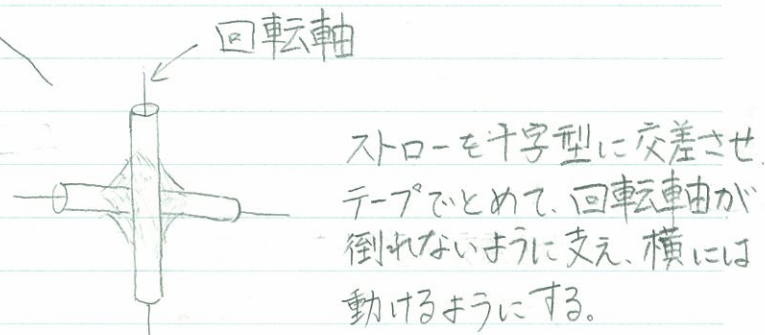 回転軸
ストローを十字型に交差させ、
テープでとめて、回転軸が
倒れないように支え、横には
動けるようにする。